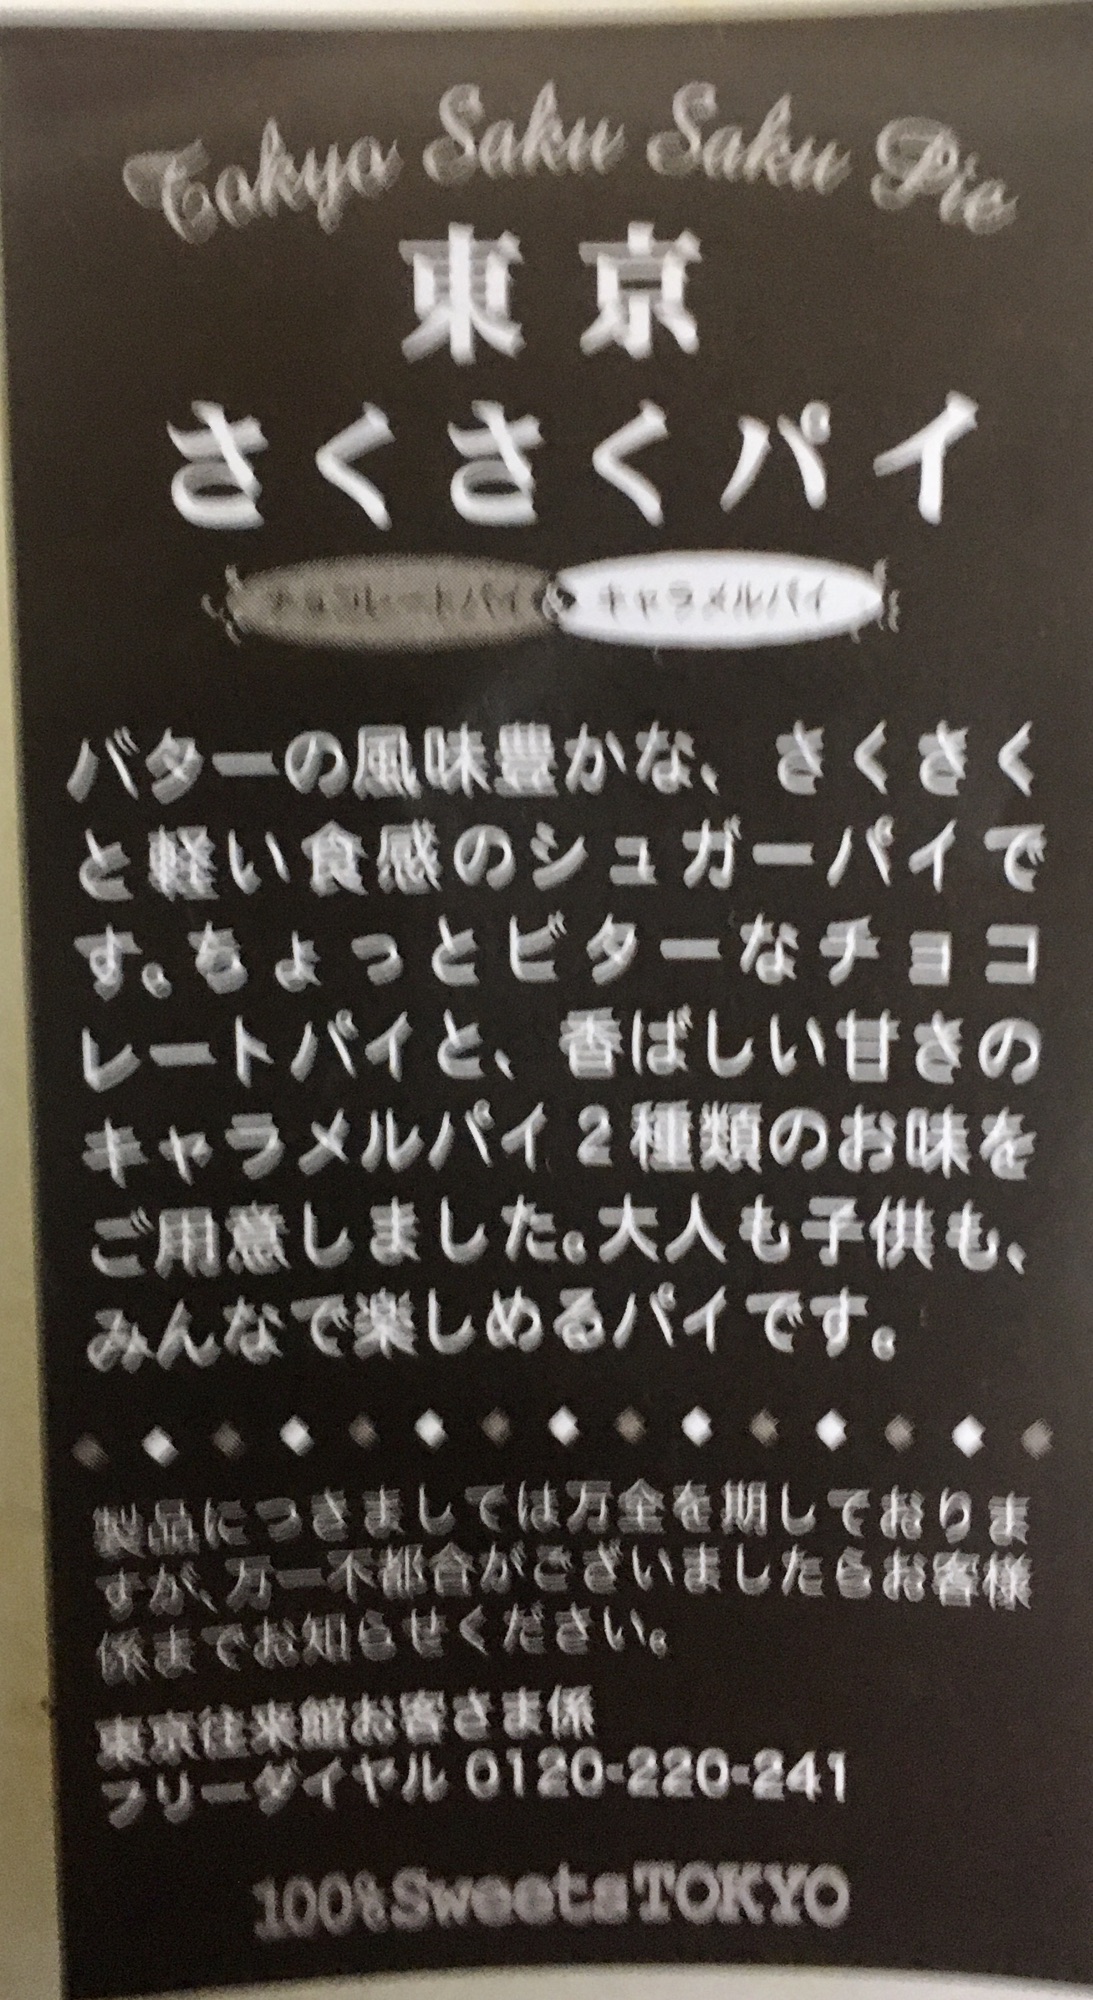 Tokyo Saku Saku Pie
東京
さくさくパイ
チョコレートパイ キャラメルパイ
バターの風味豊かな、さくさく
と軽い食感のシュガーパイで
す。ちょっとビターなチョコ
レートパイと、香ばしい甘さの
キャラメルパイ2種類のお味を
ご用意しました。大人も子供も、
みんなで楽しめるパイです。
製品につきましては万全を期しておりま
すが、万一不都合がございましたらお客様
係までお知らせください。
東京往来館お客さま係
フリーダイヤル 0120-220-241
100%SweetsTOKYO